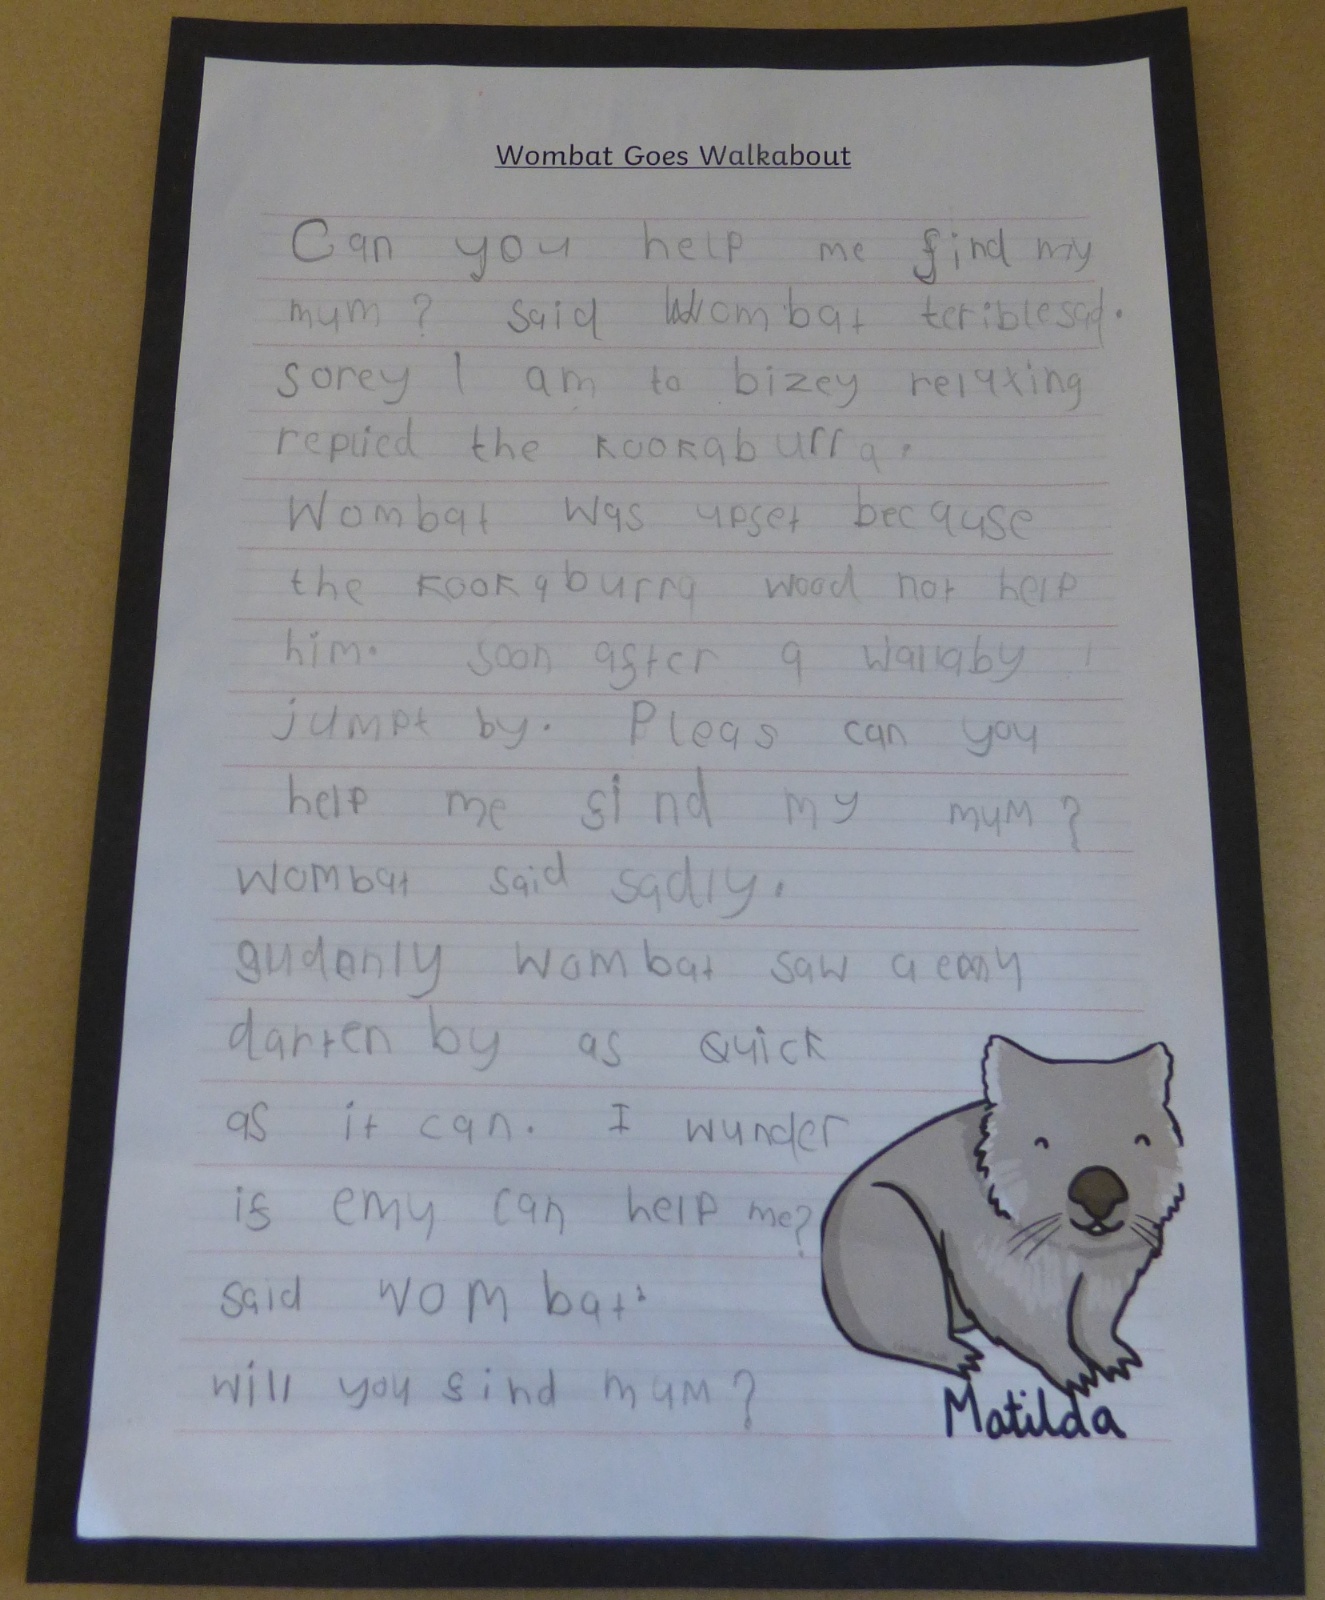 Wombat Goes Walkabout
Can you help me find my
mum? said Wombat teriblesad.
sorey I am to bizey relaxing
replied the kookaburra.
Wombat was upset because
the kookaburra wood not help
him. soon after a wallaby
jumpt by. Pleas can you
help me find my mum?
wombat said sadly.
sudanly wombat saw a
darten by as quick
as it can. I wunder
if emy can help me?
said wombat.
will you find mum?
Matilda